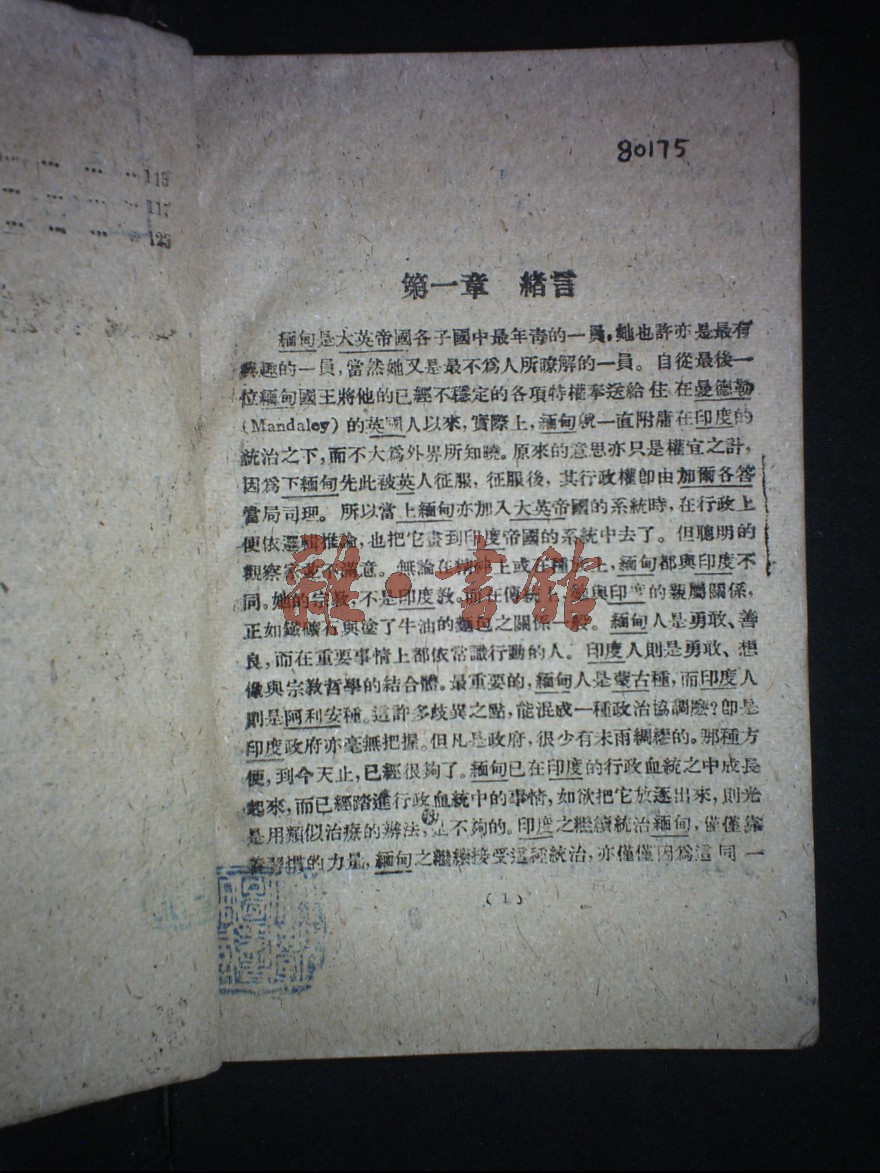 113
117
125
80175
第一章 緒言
緬甸是大英帝國各子國中最年青的一員,她也許亦是最有
興趣的一員,當然她又是最不爲人所瞭解的一員。自從最後一
位緬甸國王將他的已經不穩定的各項特權奉送給住在曼德勒
(Mandaley)的英國人以來,實際上,緬甸就一直附庸在印度的
統治之下,而不大爲外界所知曉。原來的意思亦只是權宜之計,
因爲下緬甸先此被英人征服,征服後,其行政權卽由加爾各答
當局司理。所以當上緬甸亦加入大英帝國的系統時,在行政上
便依邏輯推論,也把它畫到印度帝國的系統中去了。但聰明的
觀察家並不滿意。無論在精神上或在種族上,緬甸都與印度不
同。她的宗教,不是印度教。而在傳統上,與印度的親屬關係,
正如鐵礦石與塗了牛油的麵包之關係一般。緬甸人是勇敢、善
良,而在重要事情上都依常識行動的人。印度人則是勇敢、想
像與宗教哲學的結合體。最重要的,緬甸人是蒙古種,而印度人
則是阿利安種。這許多歧異之點,能泯成一種政治協調麽?卽是
印度政府亦毫無把握。但凡是政府,很少有未雨綢繆的。那種方
便,到今天止,已經很夠了。緬甸已在印度的行政血統之中成長
起來,而已經踏進行政血統中的事情,如欲把它放逐出來,則光
是用類似治療的辦法,是不夠的。印度之繼續統治緬甸,僅僅靠
着習慣的力量,緬甸之繼續接受這種統治,亦僅僅因爲這同一
(1)
雜·書館